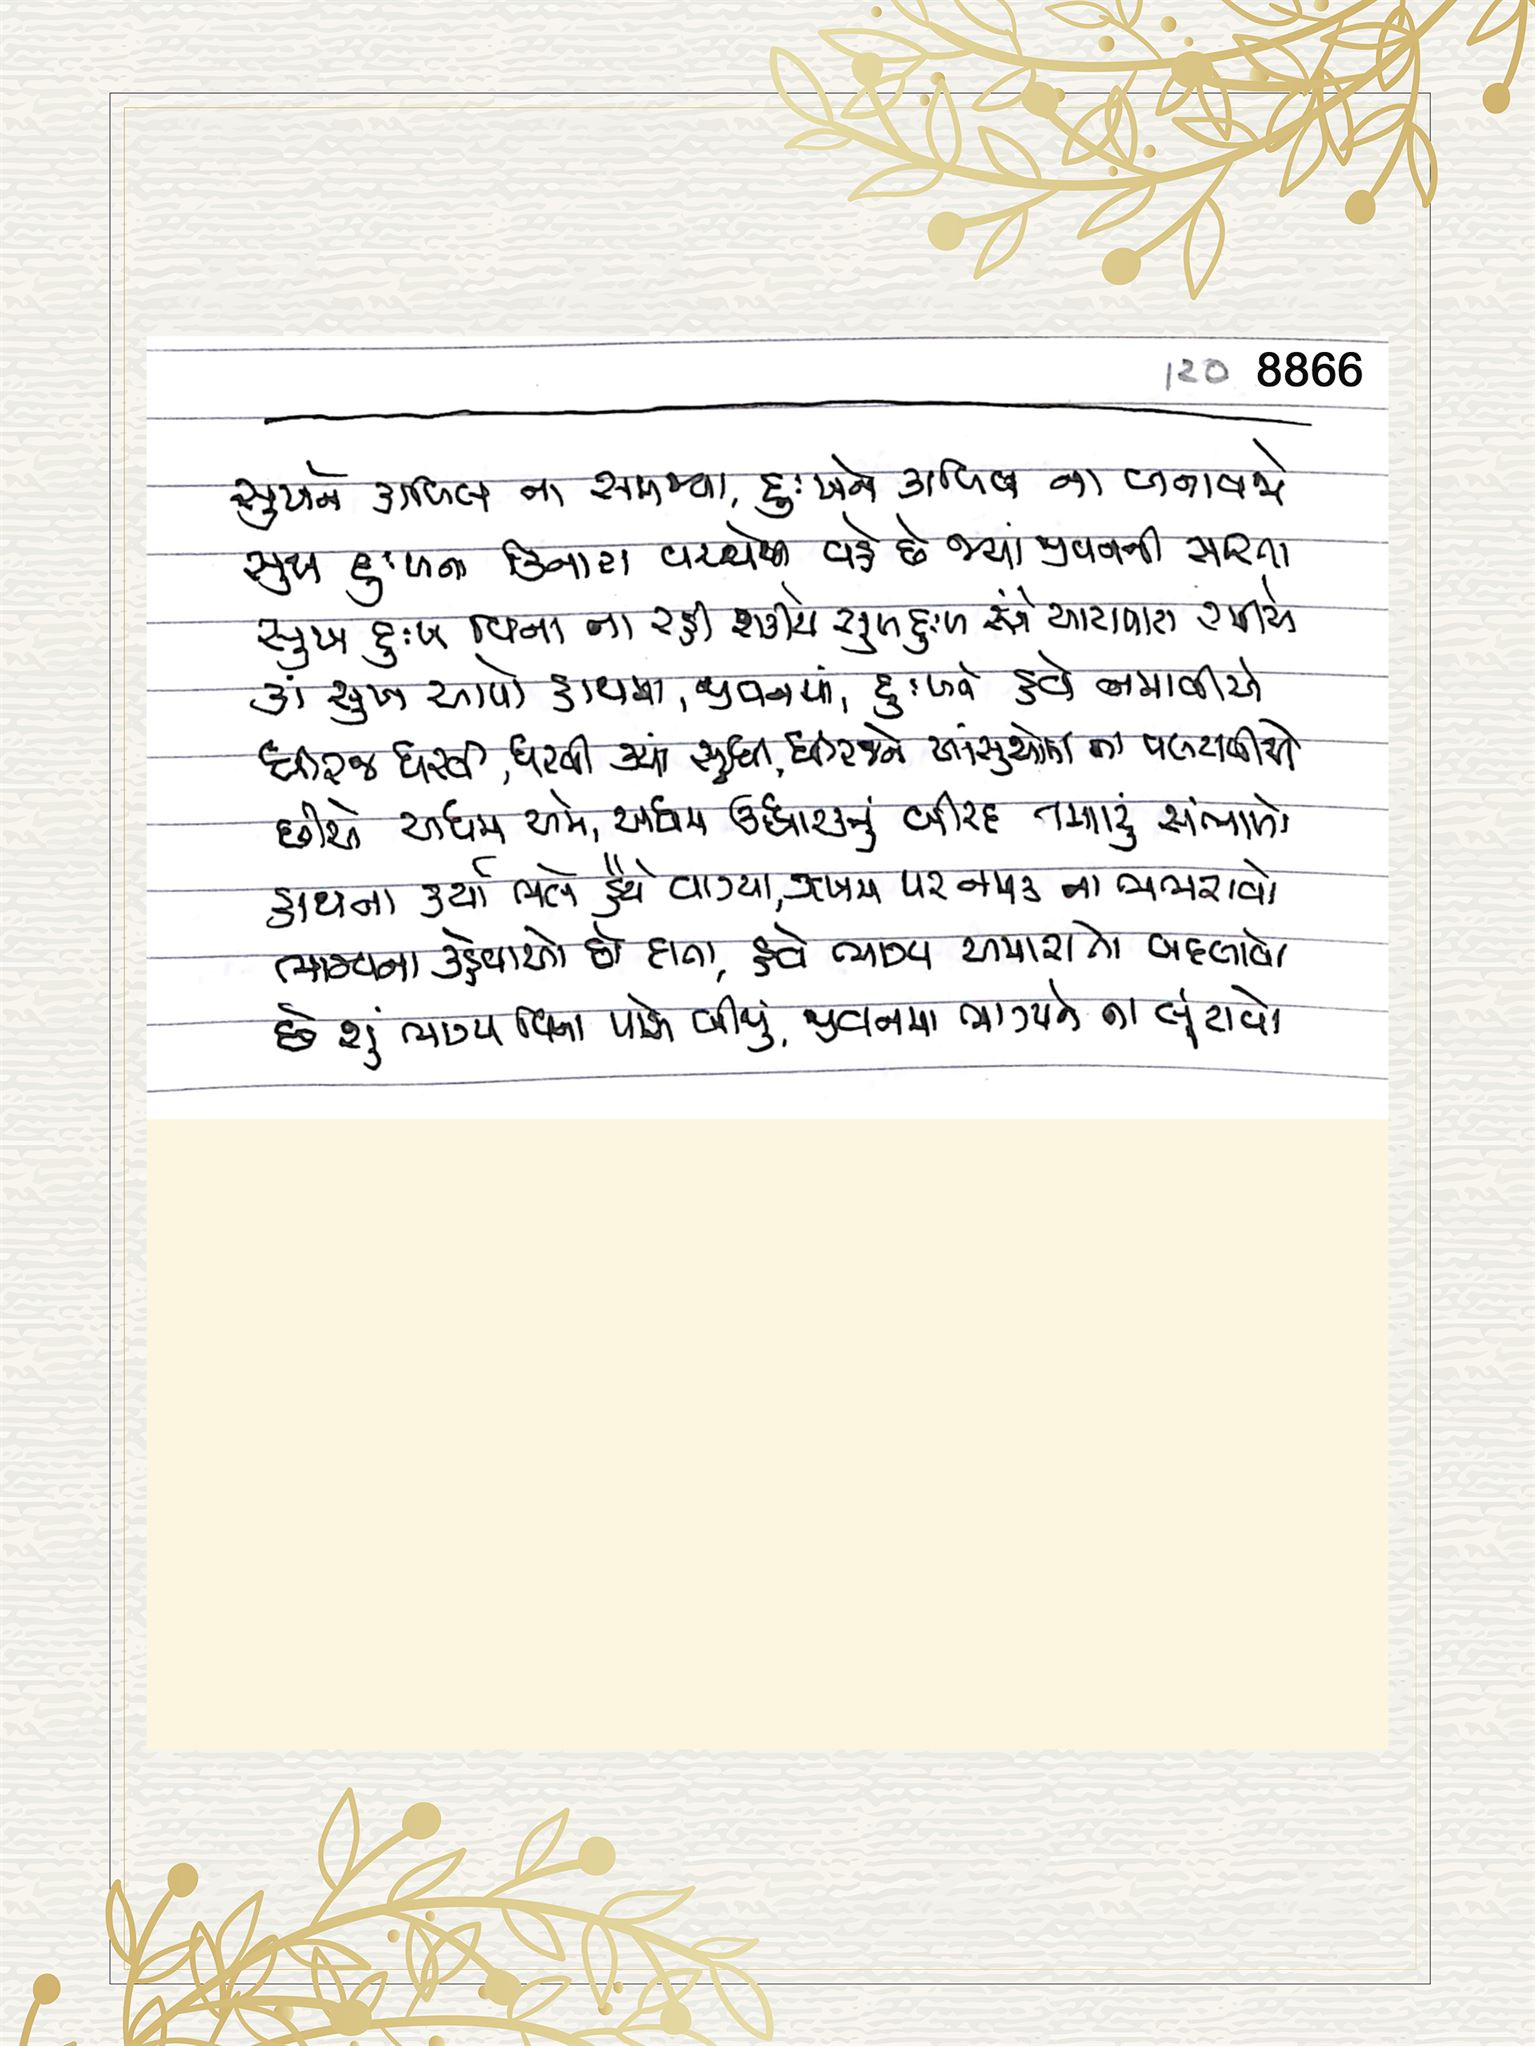 120 8866
સુખને કાબિલ ના સમજ્યા, દુઃખને કાબિલ ના બનાવજે
સુખ દુઃખના કિનારા વચ્ચે વહે છે જ્યાં જીવનની સરિતા
સુખ દુઃખ વિના ના રહી શકીયે સુખદુઃખ સંગે રમીયે
કાં સુખ આપો હાથમા, જીવનમાં, દુઃખને હવે
ધીરજ ધરવી, ધરવી ક્યાં સુધી, ધીરજને આંસુઓમાં ના પલટાવીયે
છીએ અધમ અમે, અધમ ઉદ્ધારકનું બીરદ તમારું સંભાળો
હાથના કર્યા ભલે હૈયે વાગ્યા, જખમ પર નમક ના ભભરાવો
ભાગ્યના કહેવાઓ છો દાતા, હવે ભાગ્ય અમારા તો બદલાવો
છે શું ભાગ્ય વિના પાસે બીજું, જીવનમા ભાગ્યને ના લૂંટાવો